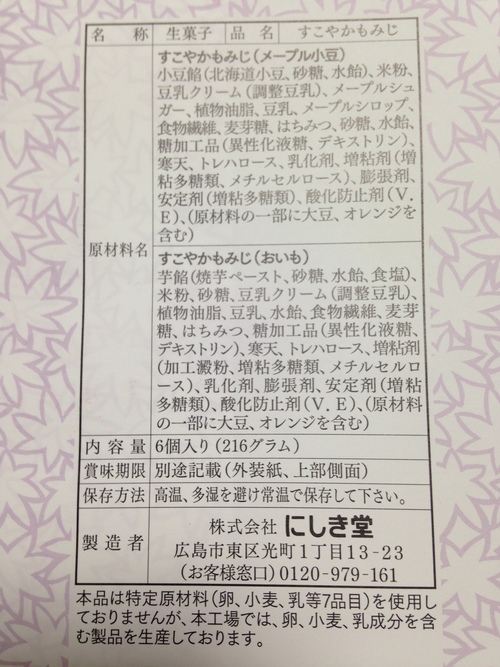 名 称 生菓子 品 名 すこやかもみじ
原材料名
すこやかもみじ(メープル小豆)
小豆餡(北海道小豆、砂糖、水飴)、米粉、
豆乳クリーム(調整豆乳)、メープルシュ
ガー、植物油脂、豆乳、メープルシロップ、
食物繊維、麦芽糖、はちみつ、砂糖、水飴、
糖加工品(異性化液糖、デキストリン)、
寒天、トレハロース、乳化剤、増粘剤(増
粘多糖類、メチルセルロース)、膨張剤、
安定剤(増粘多糖類)、酸化防止剤(V.
E)、(原材料の一部に大豆、オレンジを
含む)
すこやかもみじ(おいも)
芋餡(焼芋ペースト、砂糖、水飴、食塩)、
米粉、砂糖、豆乳クリーム(調整豆乳)、
植物油脂、豆乳、水飴、食物繊維、麦芽
糖、はちみつ、糖加工品(異性化液糖、
デキストリン)、寒天、トレハロース、増粘剤
(加工澱粉、増粘多糖類、メチルセルロ
ース)、乳化剤、膨張剤、安定剤(増粘
多糖類)、酸化防止剤(V.E)、(原材料
の一部に大豆、オレンジを含む)
内 容 量 6個入り(216グラム)
賞味期限 別途記載(外装紙、上部側面)
保存方法 高温、多湿を避け常温で保存して下さい。
製 造 者
株式会社 にしき堂
広島市東区光町1丁目13-23
(お客様窓口)0120-979-161
本品は特定原材料(卵、小麦、乳等7品目)を使用し
ておりませんが、本工場では、卵、小麦、乳成分を含
む製品を生産しております。